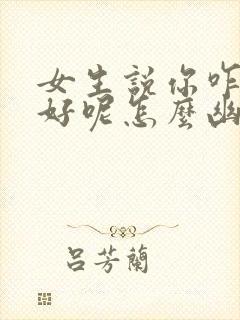 女生説你咋
好呢怎麼幽
呂芳蘭